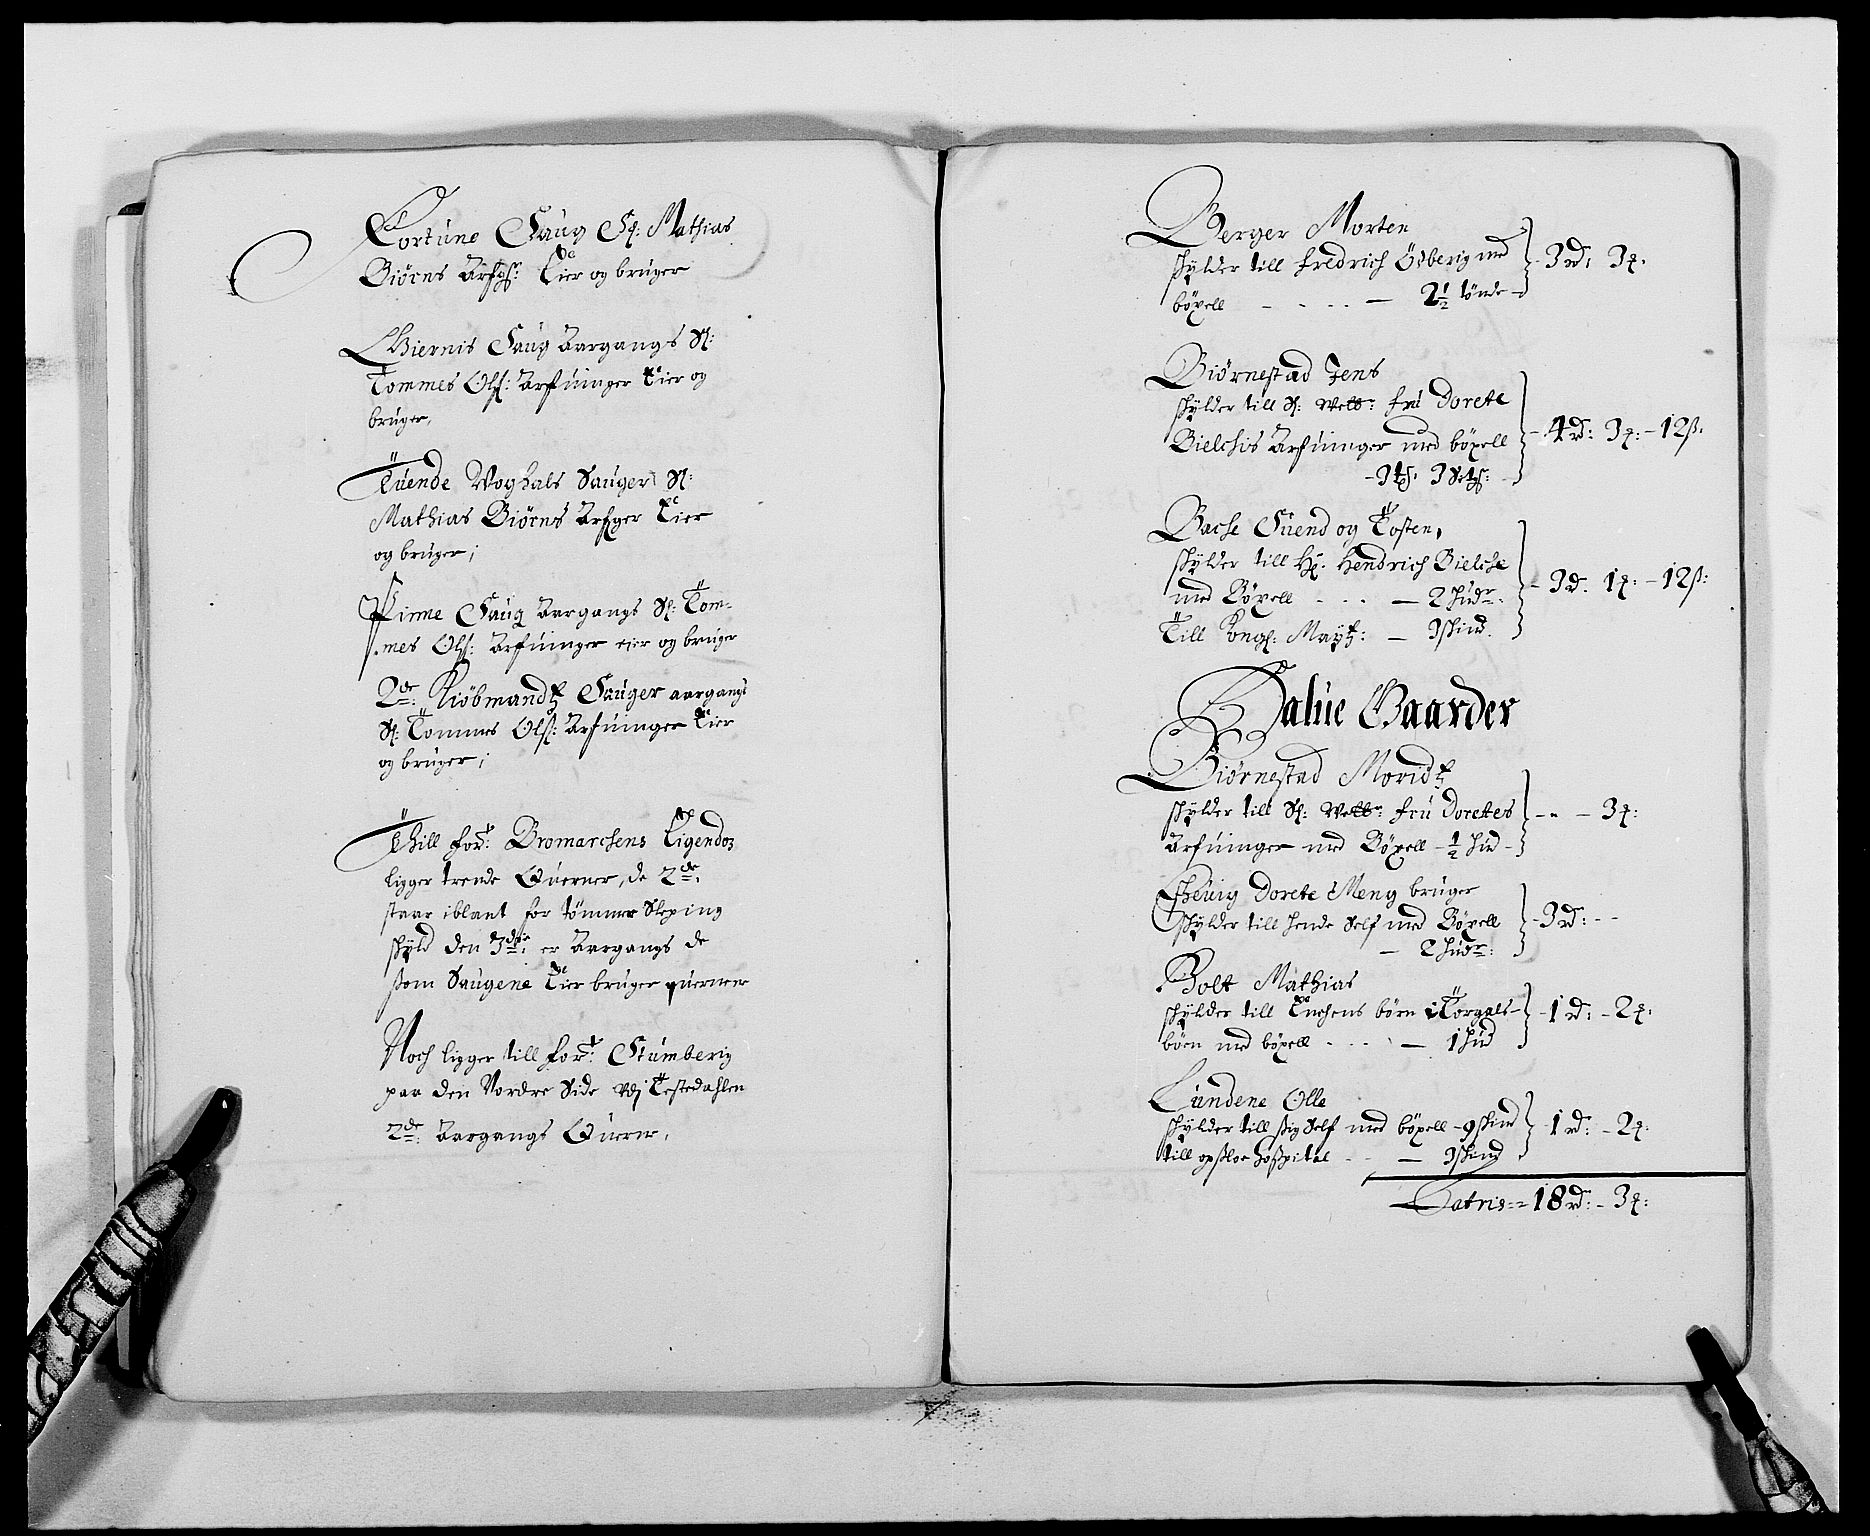 Fortune Saug Sl: Mathias
Biörns Arfgr: Eier og bruger
Giernis Saug Aargangs Sl:
Tommes Olß: Arfuinger Eier og
bruger,
Tuende Woghals Sauger Sl:
Mathias Biörns Arfger Eier
og bruger;
Pinne Saug Aargangs Sl: Tom-
mes Olß: Arfuinger eier og bruger
2de: Kiöbmandz Sauger aargangs
Sl: Tommes Olß: Arfuinger Eier
og bruger;
Thill forn: Bromarchens Eigendoz
ligger trende Querner, de 2de:
staar iblant for tömmer Sleping
skyld den 3die: er Aargangs de
ßom Saugene Eier bruger querner
Noch ligger till forn: Stumberig
paa den Nordre Side vdj Testedahlen
2de: Aargangs Querne,
Berger Morten
skylder till fredrich Ödberig med
böxell - - - - — 2½ tönde - 3 rd: 3 q:
Biörnestad Jens
skylder till Sl: Welb: fru Dorete
Bielchis Arfuinger med böxell - 4 rd: 3 q: - 12 ß:
- 3 ℔: 3 Setg:
Bache Suend og Tosten,
skylder till Hr: Hendrich Bielche
med Böxell - - - — 2 huder: - 3 rd. 1 q: - 12 ß:
Till Kongl: Maytz: — 3 skind.
Halue Gaarder
Biörnestad Moridz
skylder till Sl: Welb: fru Doretes - - - 3 q:
Arfuinger med Böxell - ½ hud -
Dorete Meng bruger
skylder till hende Self med Böxell - 3 rd: - -
— 2 huder:
Holt Mathias
skylder till Enchens börn i Torgals- - 1 rd: - 2 q:
böen med böxell - - - - — 1 hud
Lundene Olle
skylder till ßig Self med böxell - 9 skind - 1 rd: - 2 q:
till opßloe hoßpital - - — 3 skind
Latris = 18 rd: - 3 q: